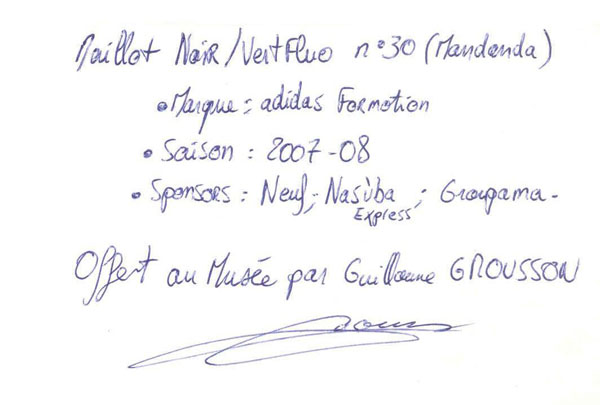 Maillot Noir/Vert Fluo n°30 (Mandanda)
• Marque : adidas Formotion
• Saison : 2007-08
• Sponsors : Neuf, Nasùba Express ; Groupama-
Offert au Musée par Guillaume GROUSSON